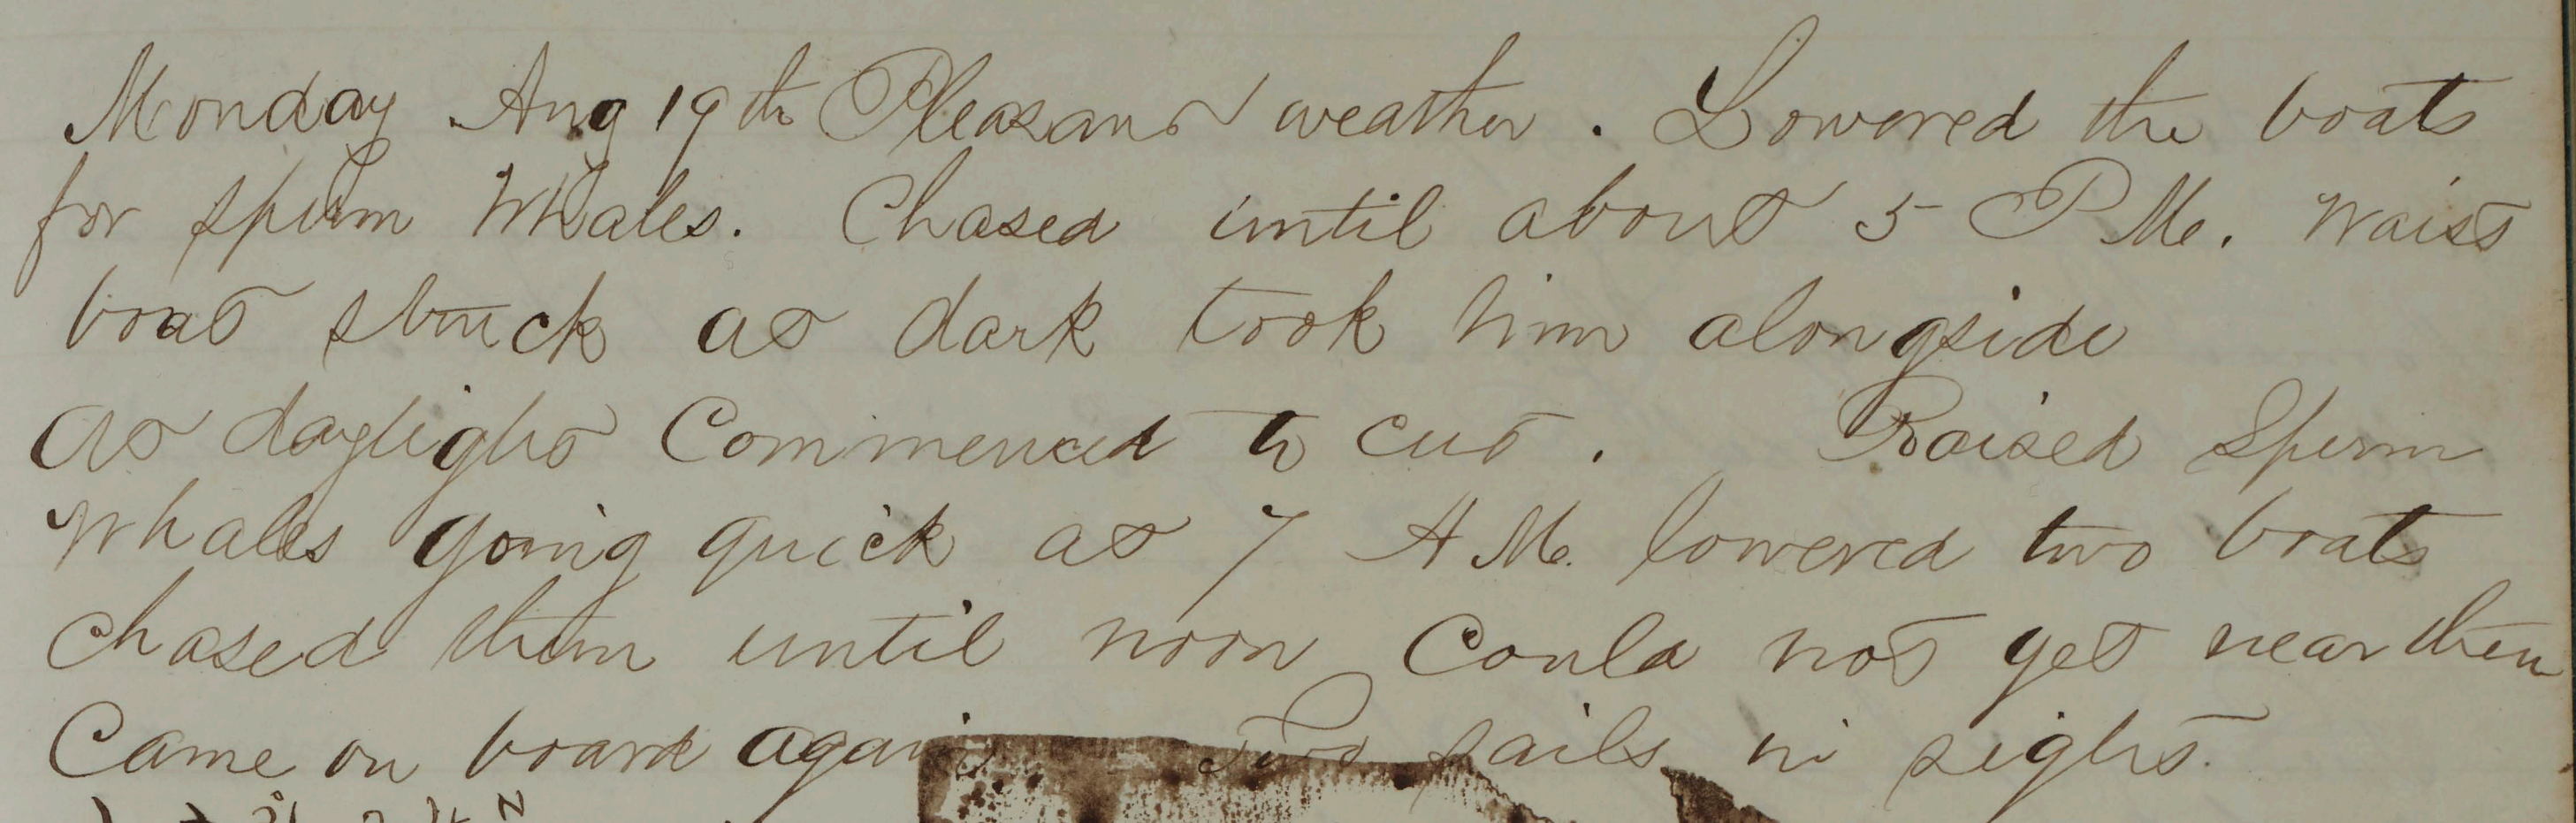 Monday Aug 19th Pleasant weather. Lowered the boats
for sperm Whales. Chased until about 5 P M. Waist
boat struck at dark took him alongside
At daylight Commenced to cut. Raised Sperm
Whales going quick at 7 A M. lowered two boats
chased them until noon Could not get near them
Came on board again Two sails in sight.
N